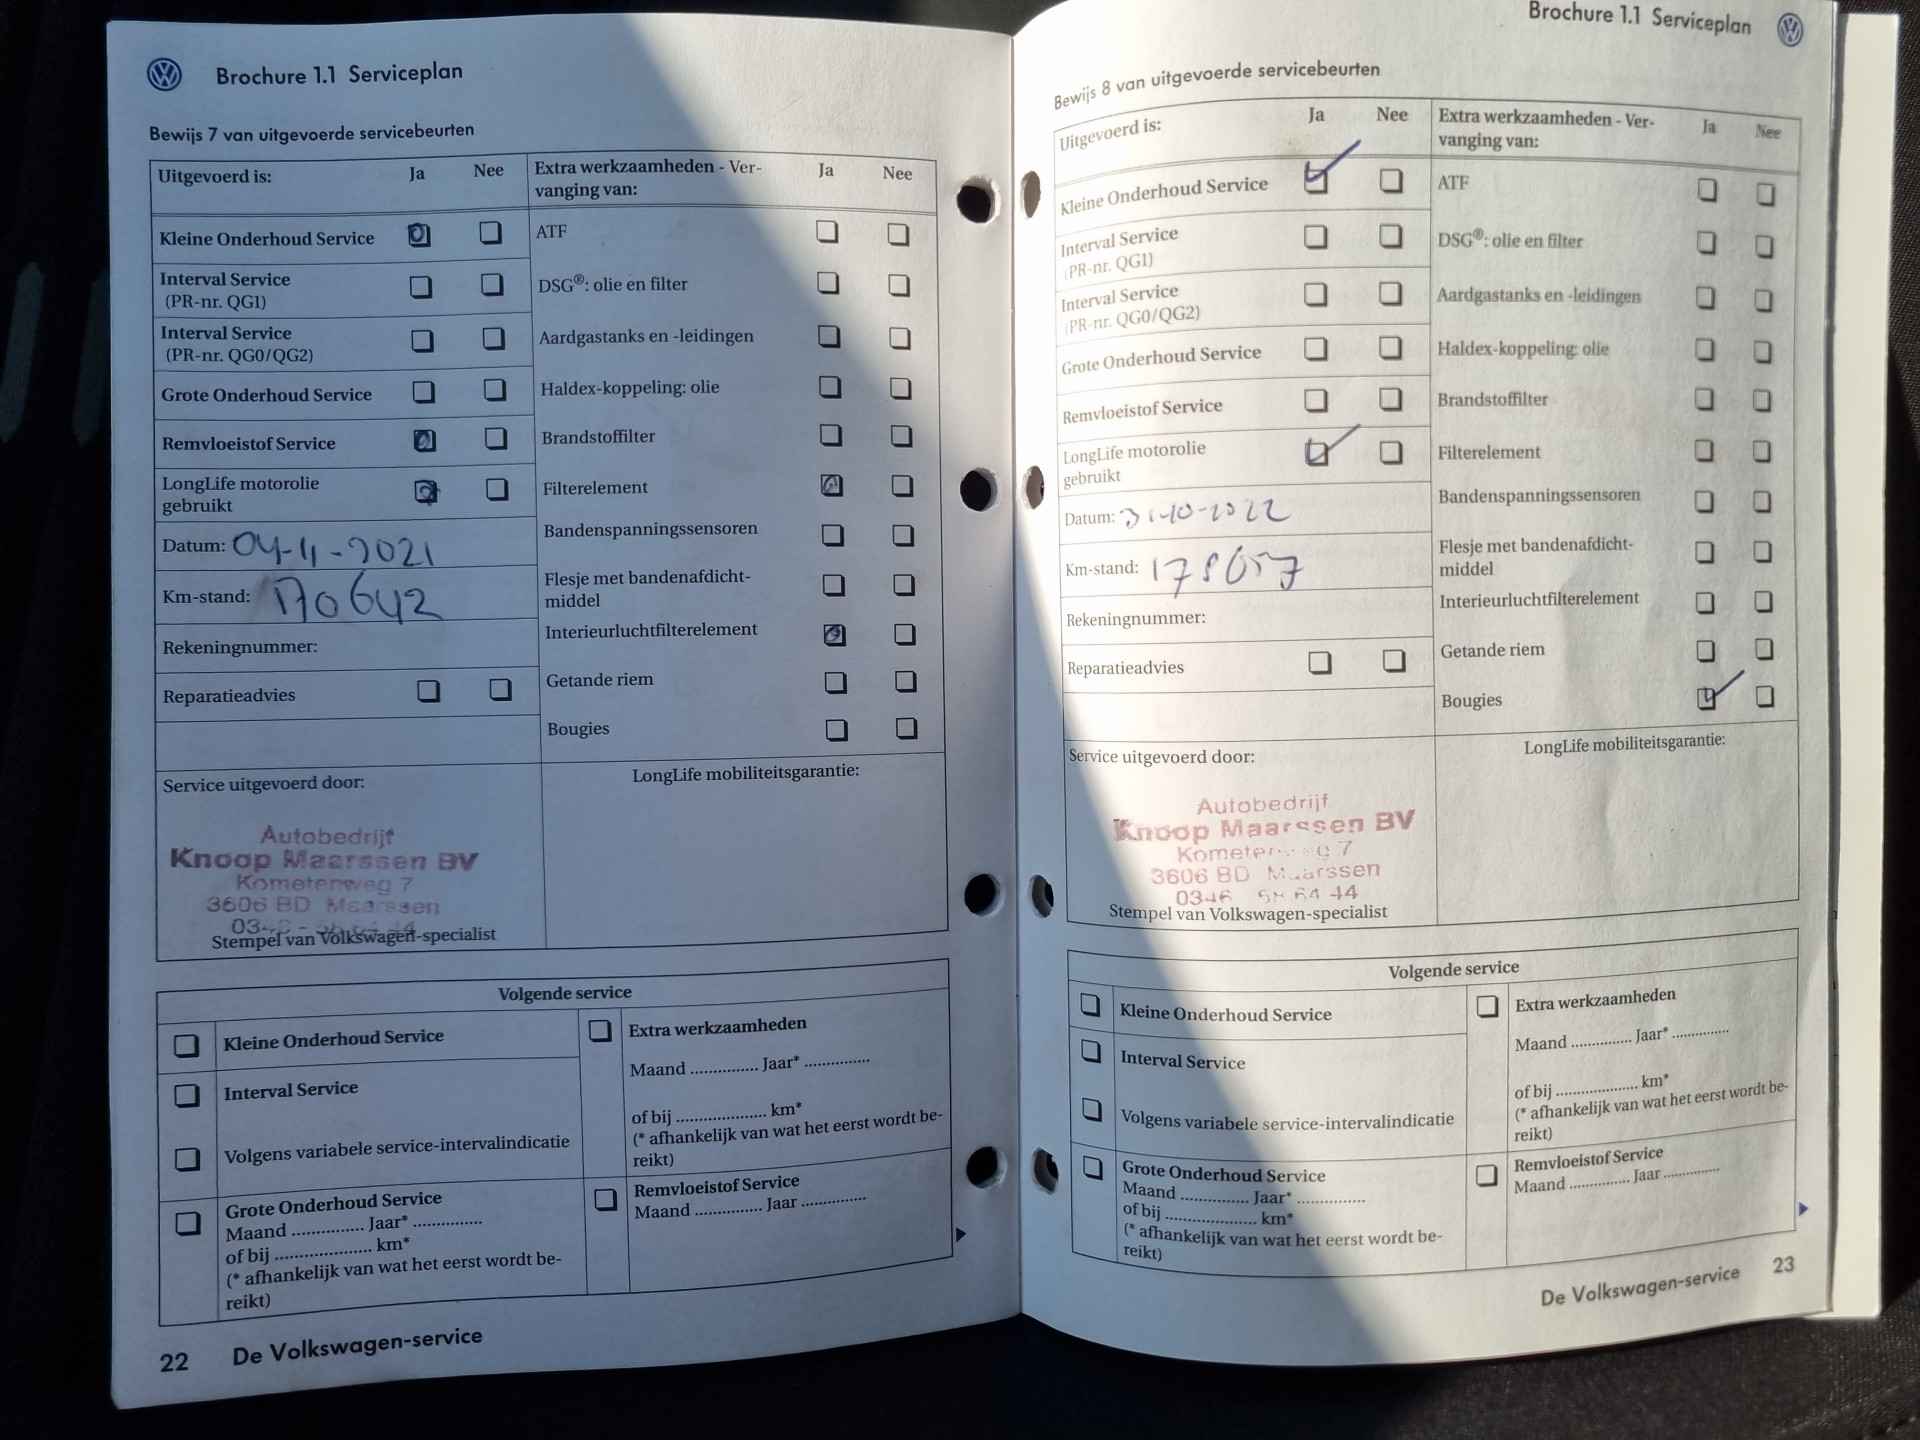 Brochure 1.1 Serviceplan
Bewijs 7 van uitgevoerde servicebeurten
Uitgevoerd is: Ja Nee
Kleine Onderhoud Service
Interval Service
(PR-nr. QG1)
Interval Service
(PR-nr. QG0/QG2)
Grote Onderhoud Service
Remvloeistof Service
LongLife motorolie
gebruikt
Datum: 04-11-2021
Km-stand: 170642
Rekeningnummer:
Reparatieadvies
Extra werkzaamheden - Ver-
vanging van: Ja Nee
ATF
DSG®: olie en filter
Aardgastanks en -leidingen
Haldex-koppeling: olie
Brandstoffilter
Filterelement
Bandenspanningssensoren
Flesje met bandenafdicht-
middel
Interieurluchtfilterelement
Getande riem
Bougies
Service uitgevoerd door:
Autobedrijf
Knoop Maarssen BV
Kometenweg 7
3606 BD Maarssen
Stempel van Volkswagen-specialist
LongLife mobiliteitsgarantie:
Volgende service
Kleine Onderhoud Service
Interval Service
Volgens variabele service-intervalindicatie
Grote Onderhoud Service
Maand .............. Jaar* ..............
of bij .................... km*
(* afhankelijk van wat het eerst wordt be-
reikt)
Extra werkzaamheden
Maand .............. Jaar* .............
of bij ................... km*
(* afhankelijk van wat het eerst wordt be-
reikt)
Remvloeistof Service
Maand .............. Jaar .............
22 De Volkswagen-service
Brochure 1.1 Serviceplan
Bewijs 8 van uitgevoerde servicebeurten
Uitgevoerd is: Ja Nee
Kleine Onderhoud Service
Interval Service
(PR-nr. QG1)
Interval Service
(PR-nr. QG0/QG2)
Grote Onderhoud Service
Remvloeistof Service
LongLife motorolie
gebruikt
Datum: 31-10-2022
Km-stand: 178657
Rekeningnummer:
Reparatieadvies
Extra werkzaamheden - Ver-
vanging van: Ja Nee
ATF
DSG®: olie en filter
Aardgastanks en -leidingen
Haldex-koppeling: olie
Brandstoffilter
Filterelement
Bandenspanningssensoren
Flesje met bandenafdicht-
middel
Interieurluchtfilterelement
Getande riem
Bougies
Service uitgevoerd door:
Autobedrijf
Knoop Maarssen BV
Kometenweg 7
3606 BD Maarssen
0346 58 64 44
Stempel van Volkswagen-specialist
LongLife mobiliteitsgarantie:
Volgende service
Kleine Onderhoud Service
Interval Service
Volgens variabele service-intervalindicatie
Grote Onderhoud Service
Maand .............. Jaar* ..............
of bij ................... km*
(* afhankelijk van wat het eerst wordt be-
reikt)
Extra werkzaamheden
Maand ............. Jaar* ............
of bij .................. km*
(* afhankelijk van wat het eerst wordt be-
reikt)
Remvloeistof Service
Maand ............. Jaar ............
De Volkswagen-service 23